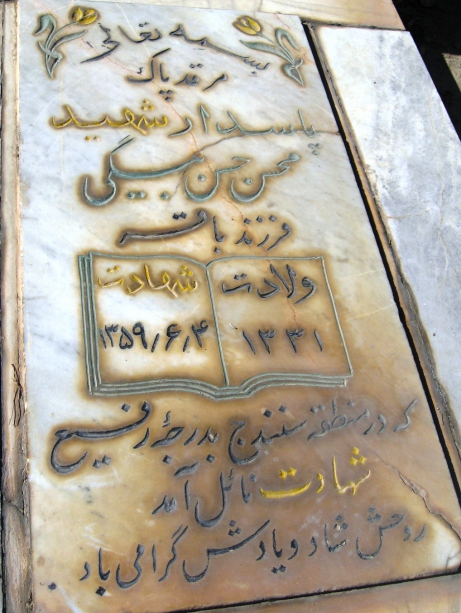 بسمه تعالی
مرقد پاک
پاسدار شهید
محسن حسن بیگی
فرزند باقر
ولادت شهادت
۱۳۳۱ ۱۳۵۹/۶/۴
که در منطقه سنندج بدرجهٔ رفیع
شهادت نائل آمد
روحش شاد و یادش گرامی باد.